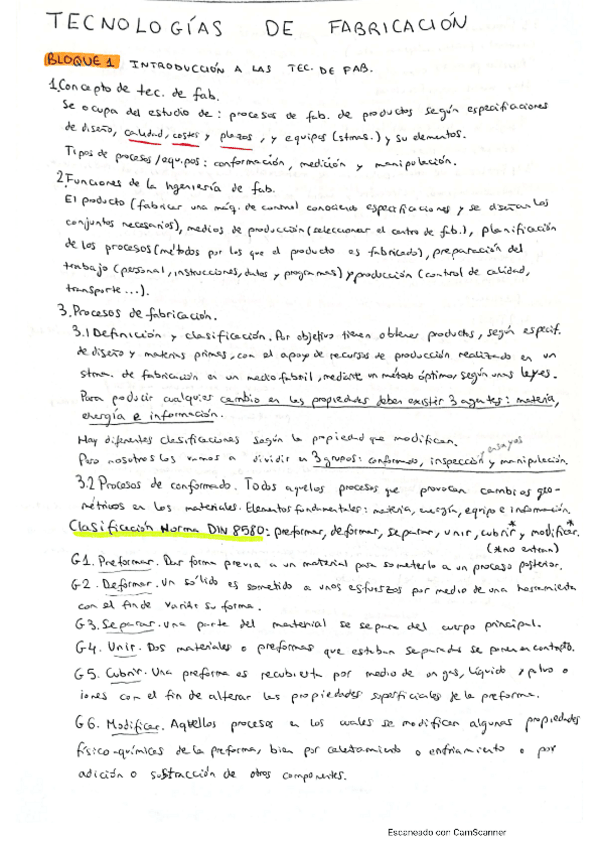 TECNOLOGÍAS DE FABRICACIÓN
BLOQUE 1 INTRODUCCIÓN A LAS TEC. DE FAB.
1. Concepto de tec. de fab.
Se ocupa del estudio de: procesos de fab. de productos según especificaciones
de diseño, calidad, costes y plazos, y equipos (stmas.) y su elementos.
Tipos de procesos/equipos: conformación, medición y manipulación.
2. Funciones de la Ingeniería de fab.
El producto (fabricar una máq. de control conociendo especificaciones y se diseñan los
conjuntos necesarios), medios de producción (seleccionar el centro de fab.), planificación
de los procesos (métodos por los que el producto es fabricado), preparación del
trabajo (personal, instrucciones, datos y programas) y producción (control de calidad,
transporte...).
3. Procesos de fabricación.
3.1 Definición y clasificación. Por objetivo tienen obtener productos, según especif.
de diseño y materias primas, con el apoyo de recursos de producción realizado en un
stma. de fabricación en un medio fabril, mediante un método óptimo, según unas leyes.
Para producir cualquier cambio en las propiedades deben existir 3 agentes: materia,
energía e información.
Hay diferentes clasificaciones según la propiedad que modifican.
ensayos
Pero nosotros los vamos a dividir en 3 grupos: conformado, inspección y manipulación.
3.2 Procesos de conformado. Todos aquellos procesos que provocan cambios geo-
métricos en los materiales. Elementos fundamentales: materia, energía, equipo e información.
Clasificación Norma DIN 8580: preformar, deformar, separar, unir, cubrir* y modificar.*
(* no entran)
G1. Preformar. Dar forma previa a un material para someterlo a un proceso posterior.
G2. Deformar. Un sólido es sometido a unos esfuerzos por medio de una herramienta
con el fin de variar su forma.
G3. Separar. Una parte del material se separa del cuerpo principal.
G4. Unir. Dos materiales o preformas que estaban separados se ponen en contacto.
G5. Cubrir. Una preforma es recubierta por medio de un gas, líquido y polvo o
iones con el fin de alterar las propiedades superficiales de la preforma.
G6. Modificar. Aquellos procesos en los cuales se modifican algunas propiedades
físico-químicas de la preforma, bien por calentamiento o enfriamiento o por
adición o substracción de otros componentes.
Escaneado con CamScanner